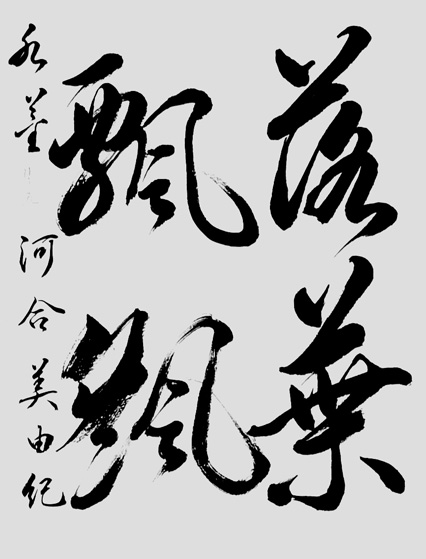 落葉
飄颻
河合美由紀